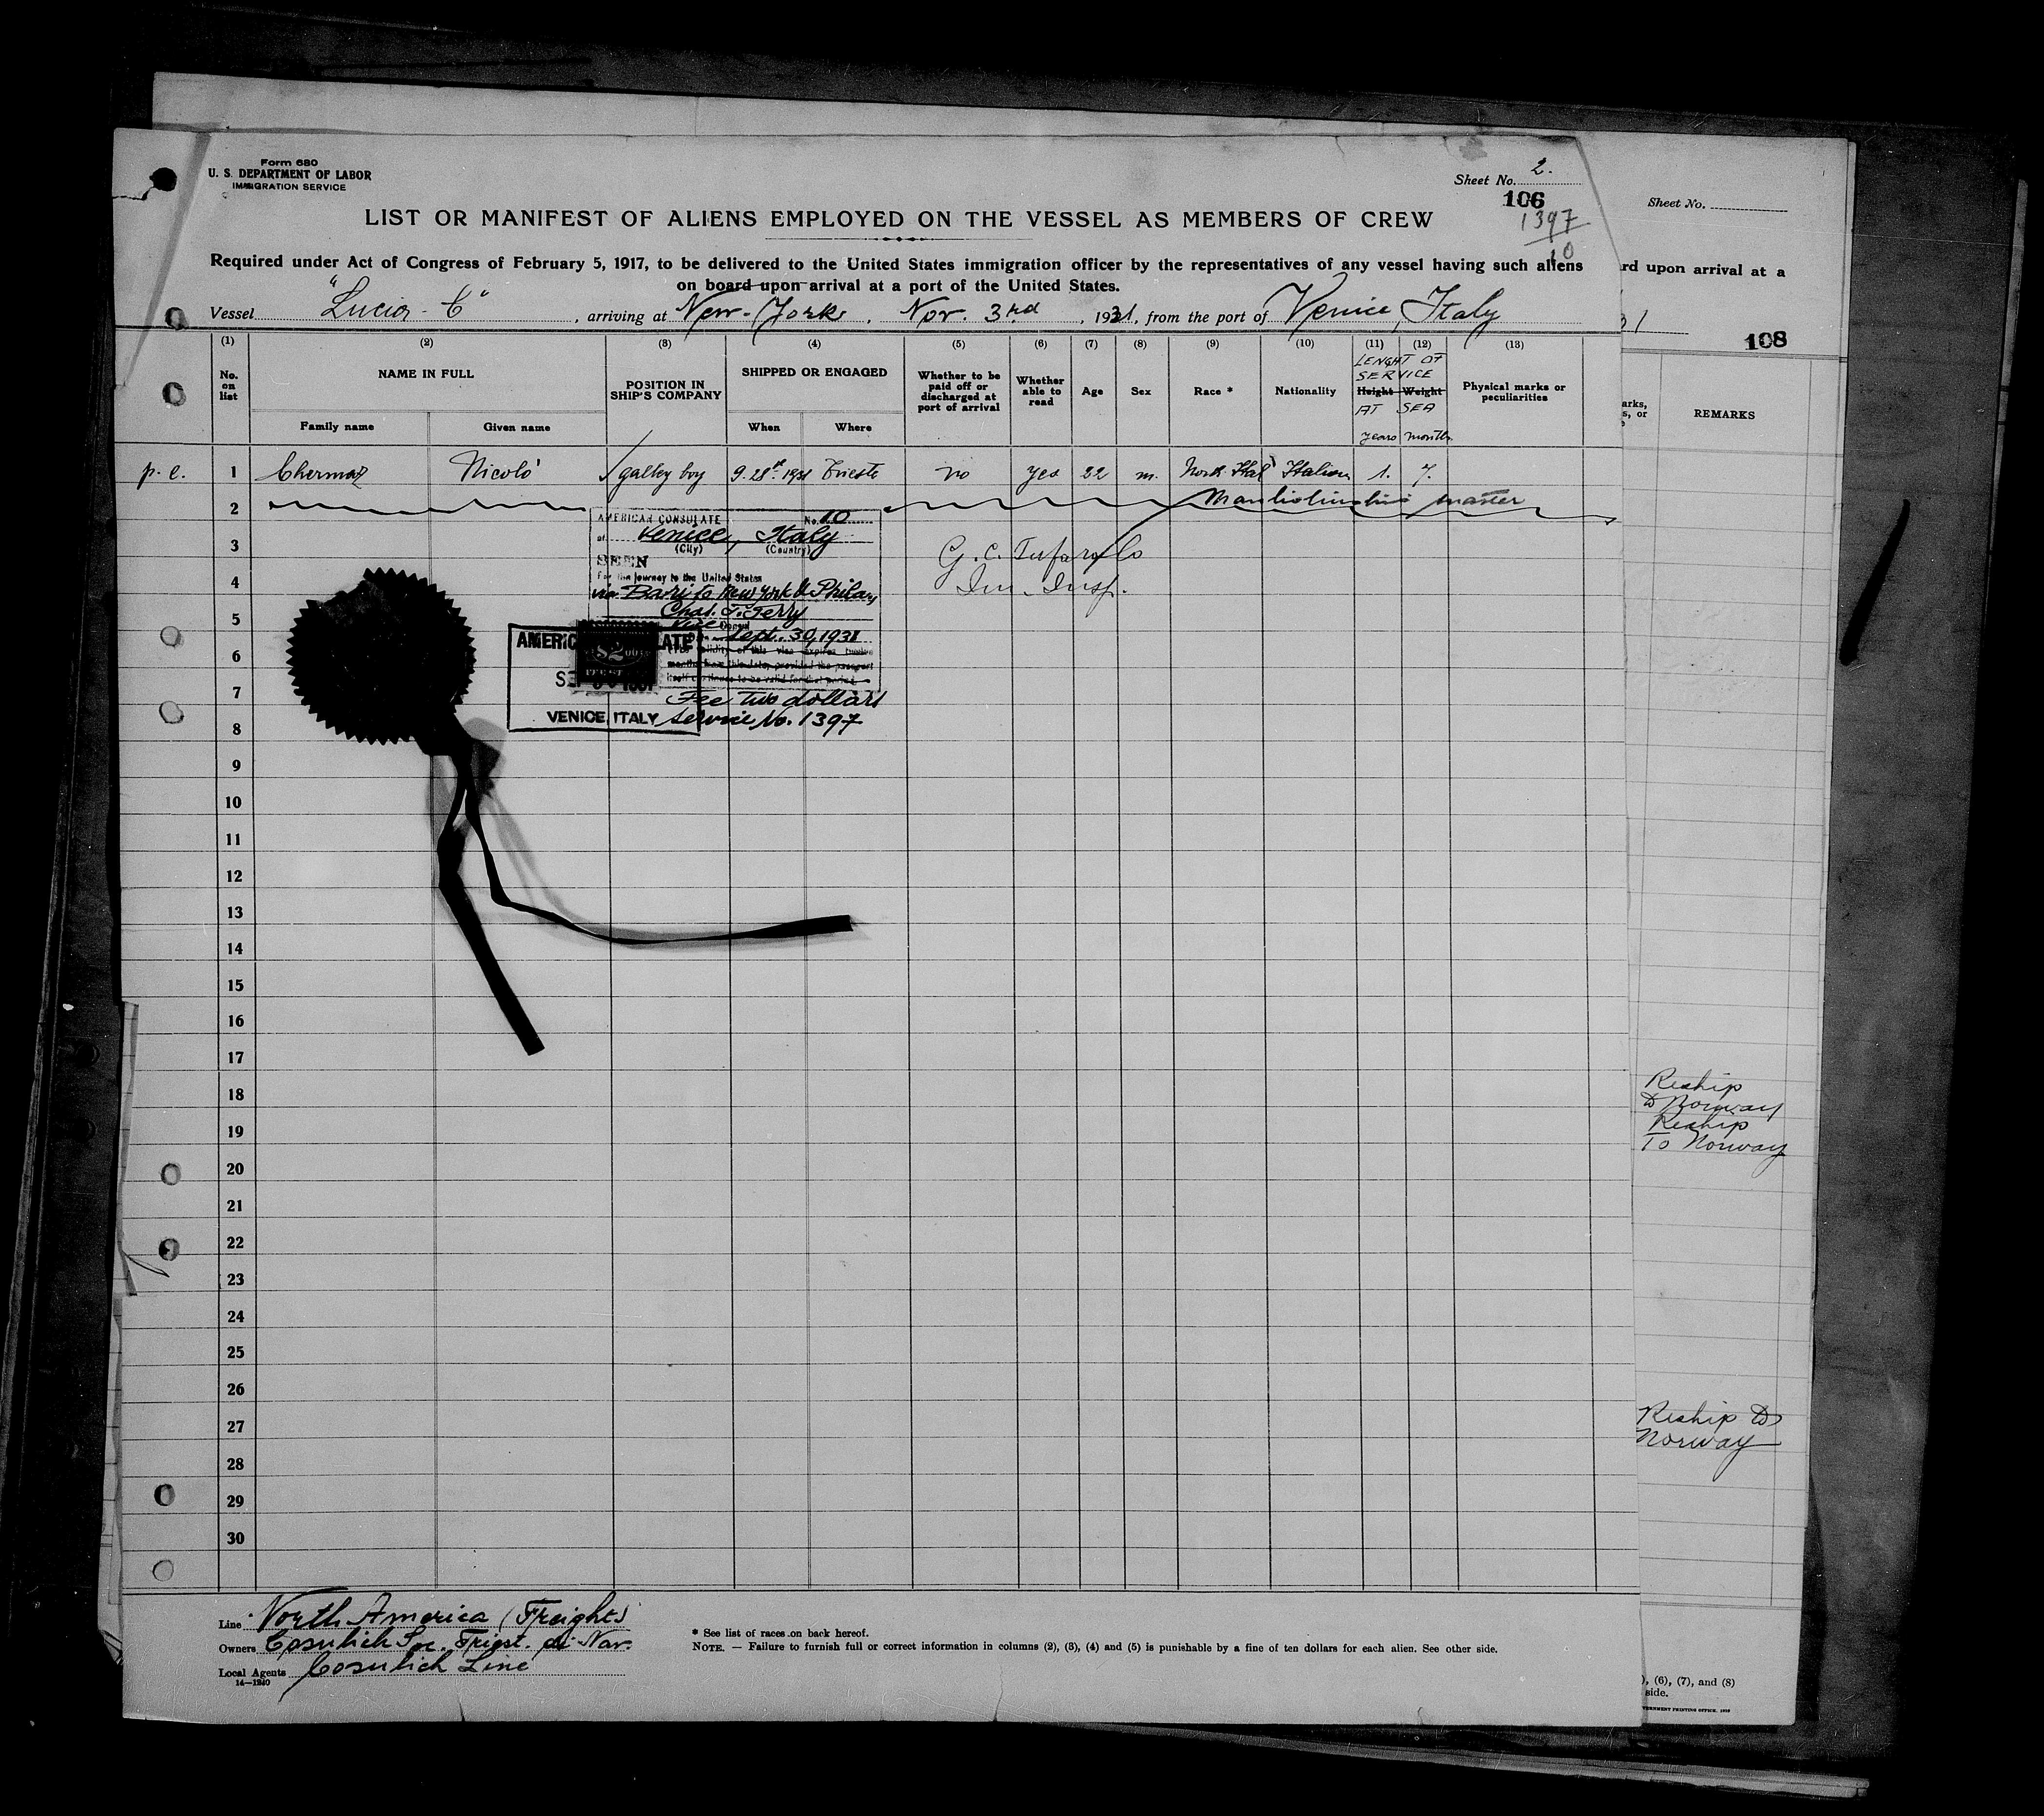 Form 680
U. S. DEPARTMENT OF LABOR
IMMIGRATION SERVICE
Sheet No. 2.
106
1397
10
LIST OR MANIFEST OF ALIENS EMPLOYED ON THE VESSEL AS MEMBERS OF CREW
Required under Act of Congress of February 5, 1917, to be delivered to the United States immigration officer by the representatives of any vessel having such aliens
on board upon arrival at a port of the United States.
Vessel "Lucia - C", arriving at New-York, Nov. 3rd, 1931, from the port of Venice, Italy
(1) (2) (3) (4) (5) (6) (7) (8) (9) (10) (11) (12) (13)
No. on list
NAME IN FULL
Family name Given name
POSITION IN SHIP'S COMPANY
SHIPPED OR ENGAGED
When Where
Whether to be paid off or discharged at port of arrival
Whether able to read
Age
Sex
Race *
Nationality
LENGHT OF SERVICE
Height Weight
AT SEA
years months
Physical marks or peculiarities
p. e. 1 Nicolò galley boy 9. 28th 1931 Trieste no yes 22 m. North Ital Italian 1. 7.
2 master
3
4
5
6
7
8
9
10
11
12
13
14
15
16
17
18
19
20
21
22
23
24
25
26
27
28
29
30
AMERICAN CONSULATE No. 10
at Venice, Italy
(City) (Country)
SEEN
For the journey to the United States
via Bari to New York & Phila
Chas. T. Terry
Vice Consul
Date Sept. 30, 1931
The validity of this visa expires twelve
months from this date, provided the passport
itself continues to be valid for that period.
Fee two dollars
Service No. 1397
VENICE, ITALY
G. C.
Im. Insp.
Line North America (Freight)
Owners Cosulich Soc. Triest. di Nav.
Local Agents Cosulich Line
14—1240
* See list of races on back hereof.
NOTE. — Failure to furnish full or correct information in columns (2), (3), (4) and (5) is punishable by a fine of ten dollars for each alien. See other side.
Sheet No.
rd upon arrival at a
108
arks,
s, or
REMARKS
Reship
to Norway
Reship
To Norway
Reship to
Norway
), (6), (7), and (8)
side.